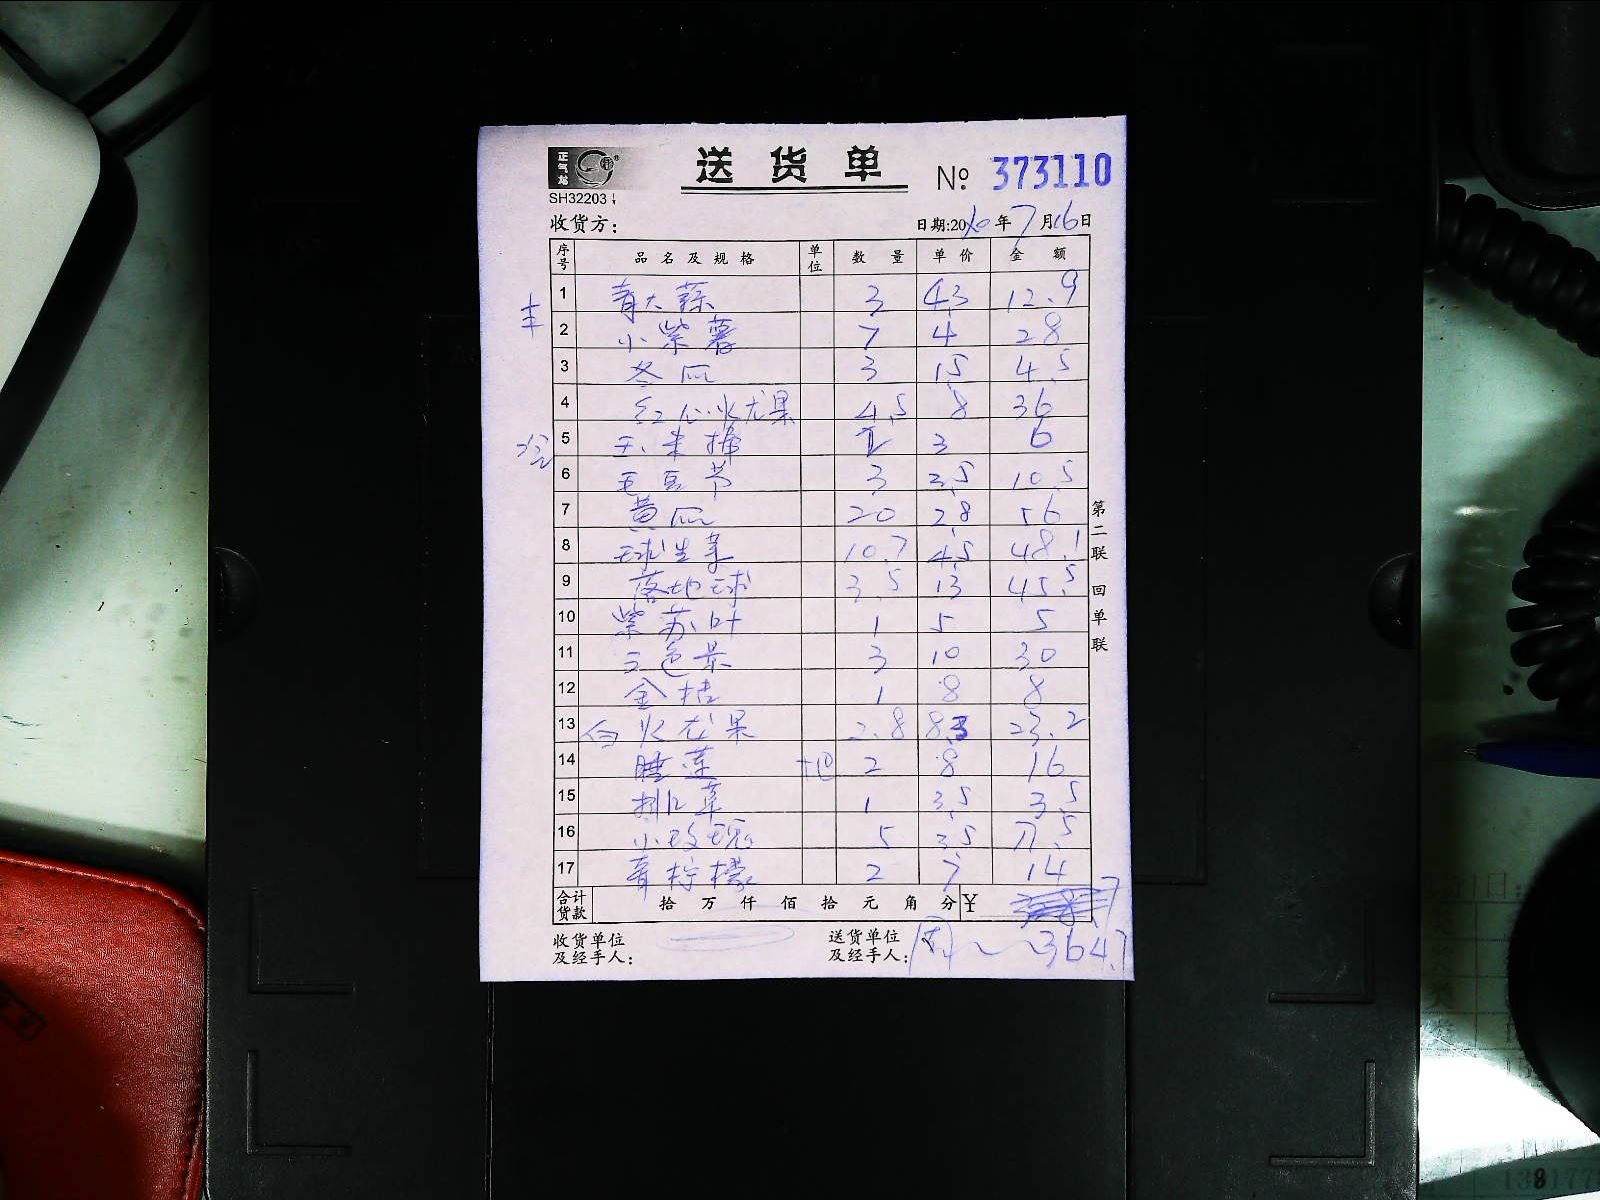 正气站
送货单 № 373110
SH32203
收货方： 日期:20 年7月16日
序号 品名及规格 单位 数量 单价 金额
1 青大蒜 3 4.3 12.9
丰
2 小紫薯 7 4 28
3 冬瓜 3 1.5 4.5
4 红心火龙果 4.5 8 36
5 玉米棒 2 3 6
冷
6 毛豆节 3 3.5 10.5
7 黄瓜 20 2.8 56
8 球生菜 10.7 4.5 48.1
9 落地球 3.5 13 45.5
10 紫苏叶 1 5 5
11 三色景 3 10 30
12 金桔 1 8 8
13 白火龙果 2.8 8.3 23.2
14 睡莲 2 8 16
15 排草 1 3.5 3.5
16 小玫瑰 5 3.5 17.5
17 青柠檬 2 7 14
合计货款 拾 万 仟 佰 拾 元 角 分 ¥
收货单位及经手人： 送货单位及经手人： 364.7
第二联 回单联